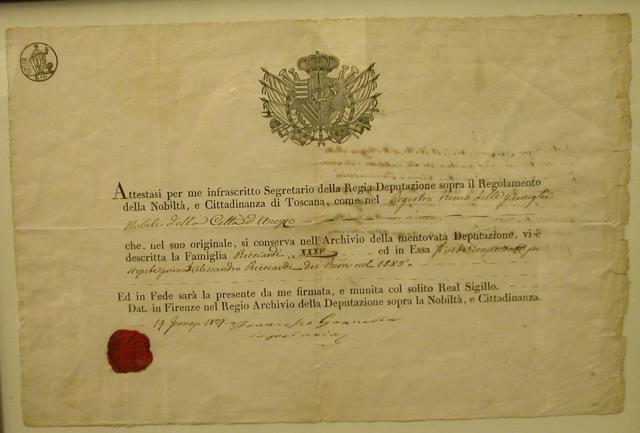 Attestasi per me infrascritto Segretario della Regia Deputazione sopra il Regolamento
della Nobiltà, e Cittadinanza di Toscana, come nel Registro Primo delle famiglie
Nobile della Città d'Arezzo
che, nel suo originale, si conserva nell'Archivio della mentovata Deputazione, vi è
descritta la Famiglia Ricciardi XXXV ed in Essa
Alessandro Ricciardi nel
Ed in Fede sarà la presente da me firmata, e munita col solito Real Sigillo.
Dat. in Firenze nel Regio Archivio della Deputazione sopra la Nobiltà, e Cittadinanza.
19